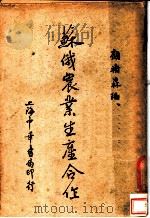 顧樹森編
蘇俄農業生產合作
上海中華書局印行